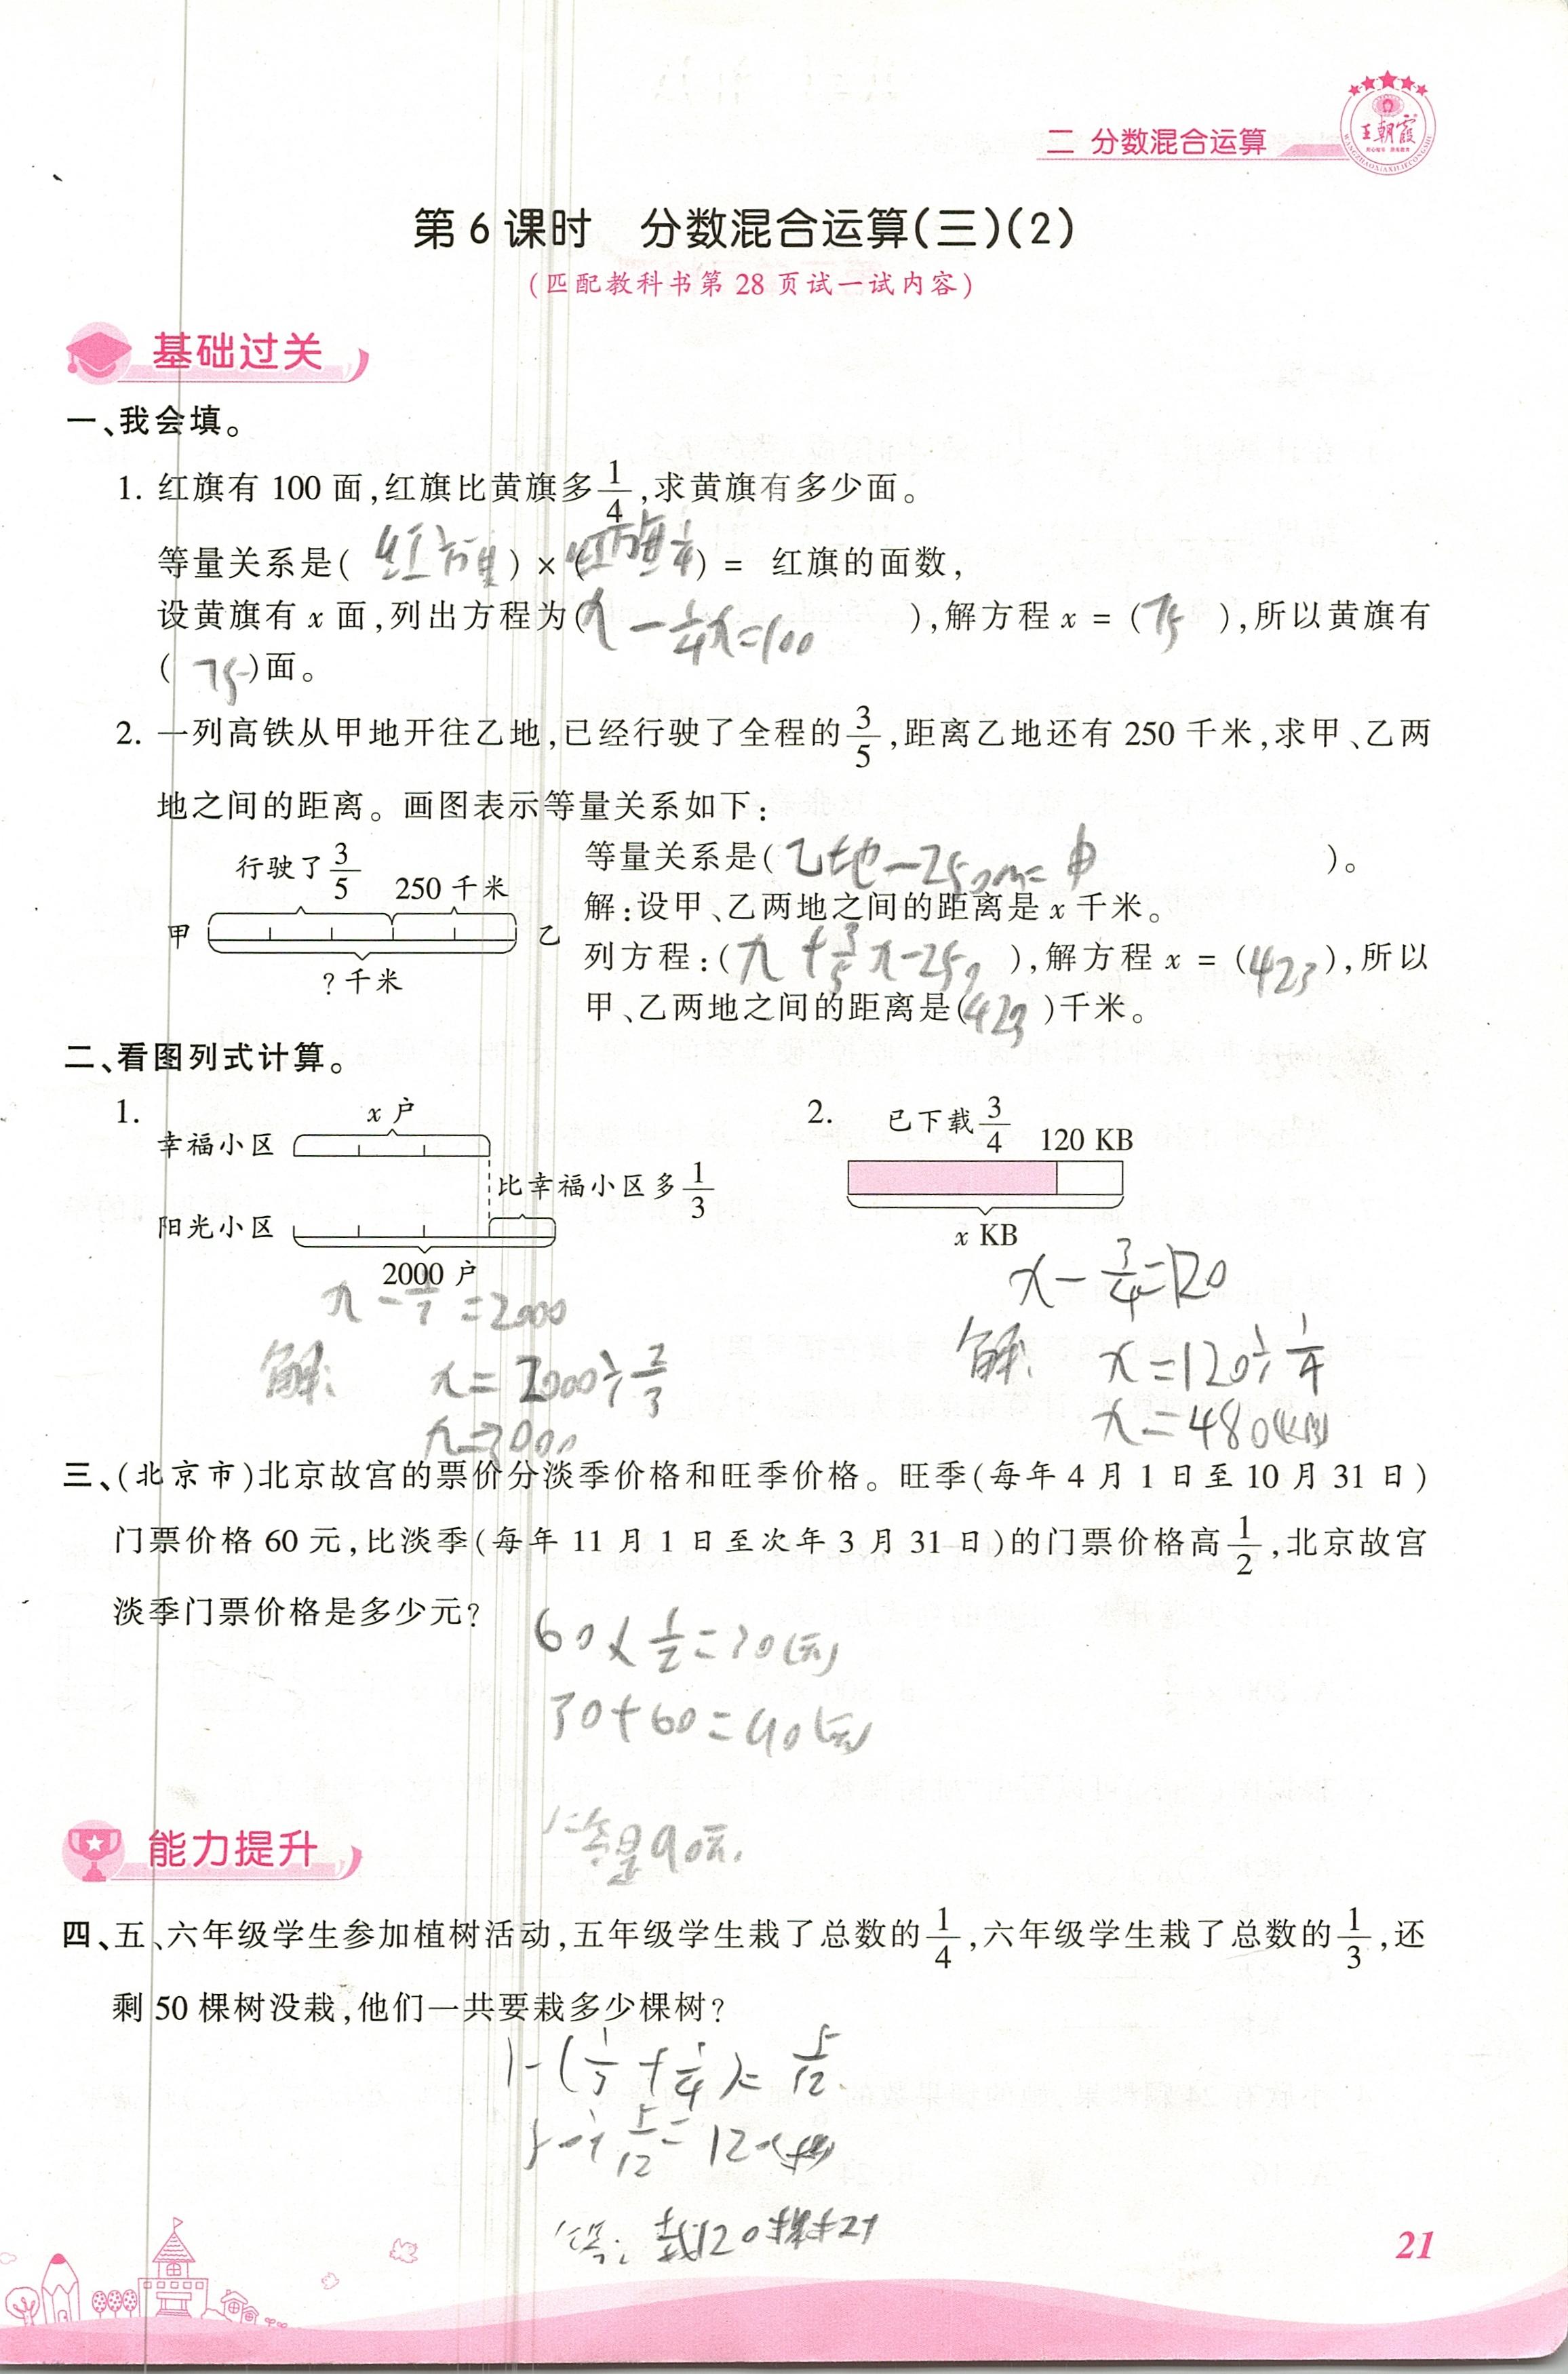 二 分数混合运算
王朝霞
第6课时 分数混合运算(三)(2)
(匹配教科书第28页试一试内容)
基础过关
一、我会填。
1. 红旗有100面,红旗比黄旗多1/4,求黄旗有多少面。
等量关系是( 红旗 )×( 红旗1/4 )= 红旗的面数,
设黄旗有x面,列出方程为( x-1/4x=100 ),解方程x=( 75 ),所以黄旗有
( 75 )面。
2. 一列高铁从甲地开往乙地,已经行驶了全程的3/5,距离乙地还有250千米,求甲、乙两
地之间的距离。画图表示等量关系如下:
行驶了3/5 250千米
甲 乙
?千米
等量关系是( 乙地-250m=甲 )。
解:设甲、乙两地之间的距离是x千米。
列方程:( x+3/5x-250 ),解方程x=( 423 ),所以
甲、乙两地之间的距离是( 423 )千米。
二、看图列式计算。
1.
x户
幸福小区
比幸福小区多1/3
阳光小区
2000户
=2000
解: x=2000÷2/3
x=3000
2.
已下载3/4 120 KB
x KB
x-3/4=120
解: x=120÷1/4
x=480(KB)
三、(北京市)北京故宫的票价分淡季价格和旺季价格。旺季(每年4月1日至10月31日)
门票价格60元,比淡季(每年11月1日至次年3月31日)的门票价格高1/2,北京故宫
淡季门票价格是多少元?
60×1/2=30(元)
30+60=90(元)
答是90元.
能力提升
四、五、六年级学生参加植树活动,五年级学生栽了总数的1/4,六年级学生栽了总数的1/3,还
剩50棵树没栽,他们一共要栽多少棵树?
1-(1/3+1/4)=5/12
50÷5/12=120(棵)
答:栽120棵树
21